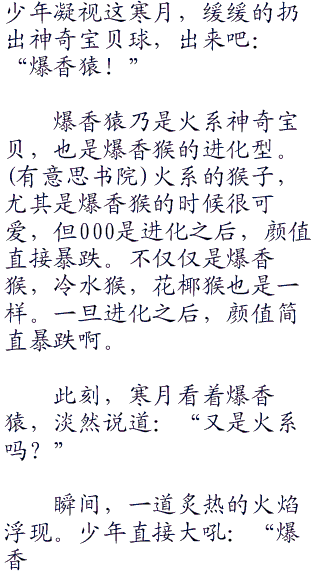 少年凝视这寒月，缓缓的扔
出神奇宝贝球，出来吧：
“爆香猿！”
爆香猿乃是火系神奇宝
贝，也是爆香猴的进化型。
(有意思书院)火系的猴子，
尤其是爆香猴的时候很可
爱，但000是进化之后，颜值
直接暴跌。不仅仅是爆香
猴，冷水猴，花椰猴也是一
样。一旦进化之后，颜值简
直暴跌啊。
此刻，寒月看着爆香
猿，淡然说道：“又是火系
吗？”
瞬间，一道炙热的火焰
浮现。少年直接大吼：“爆
香